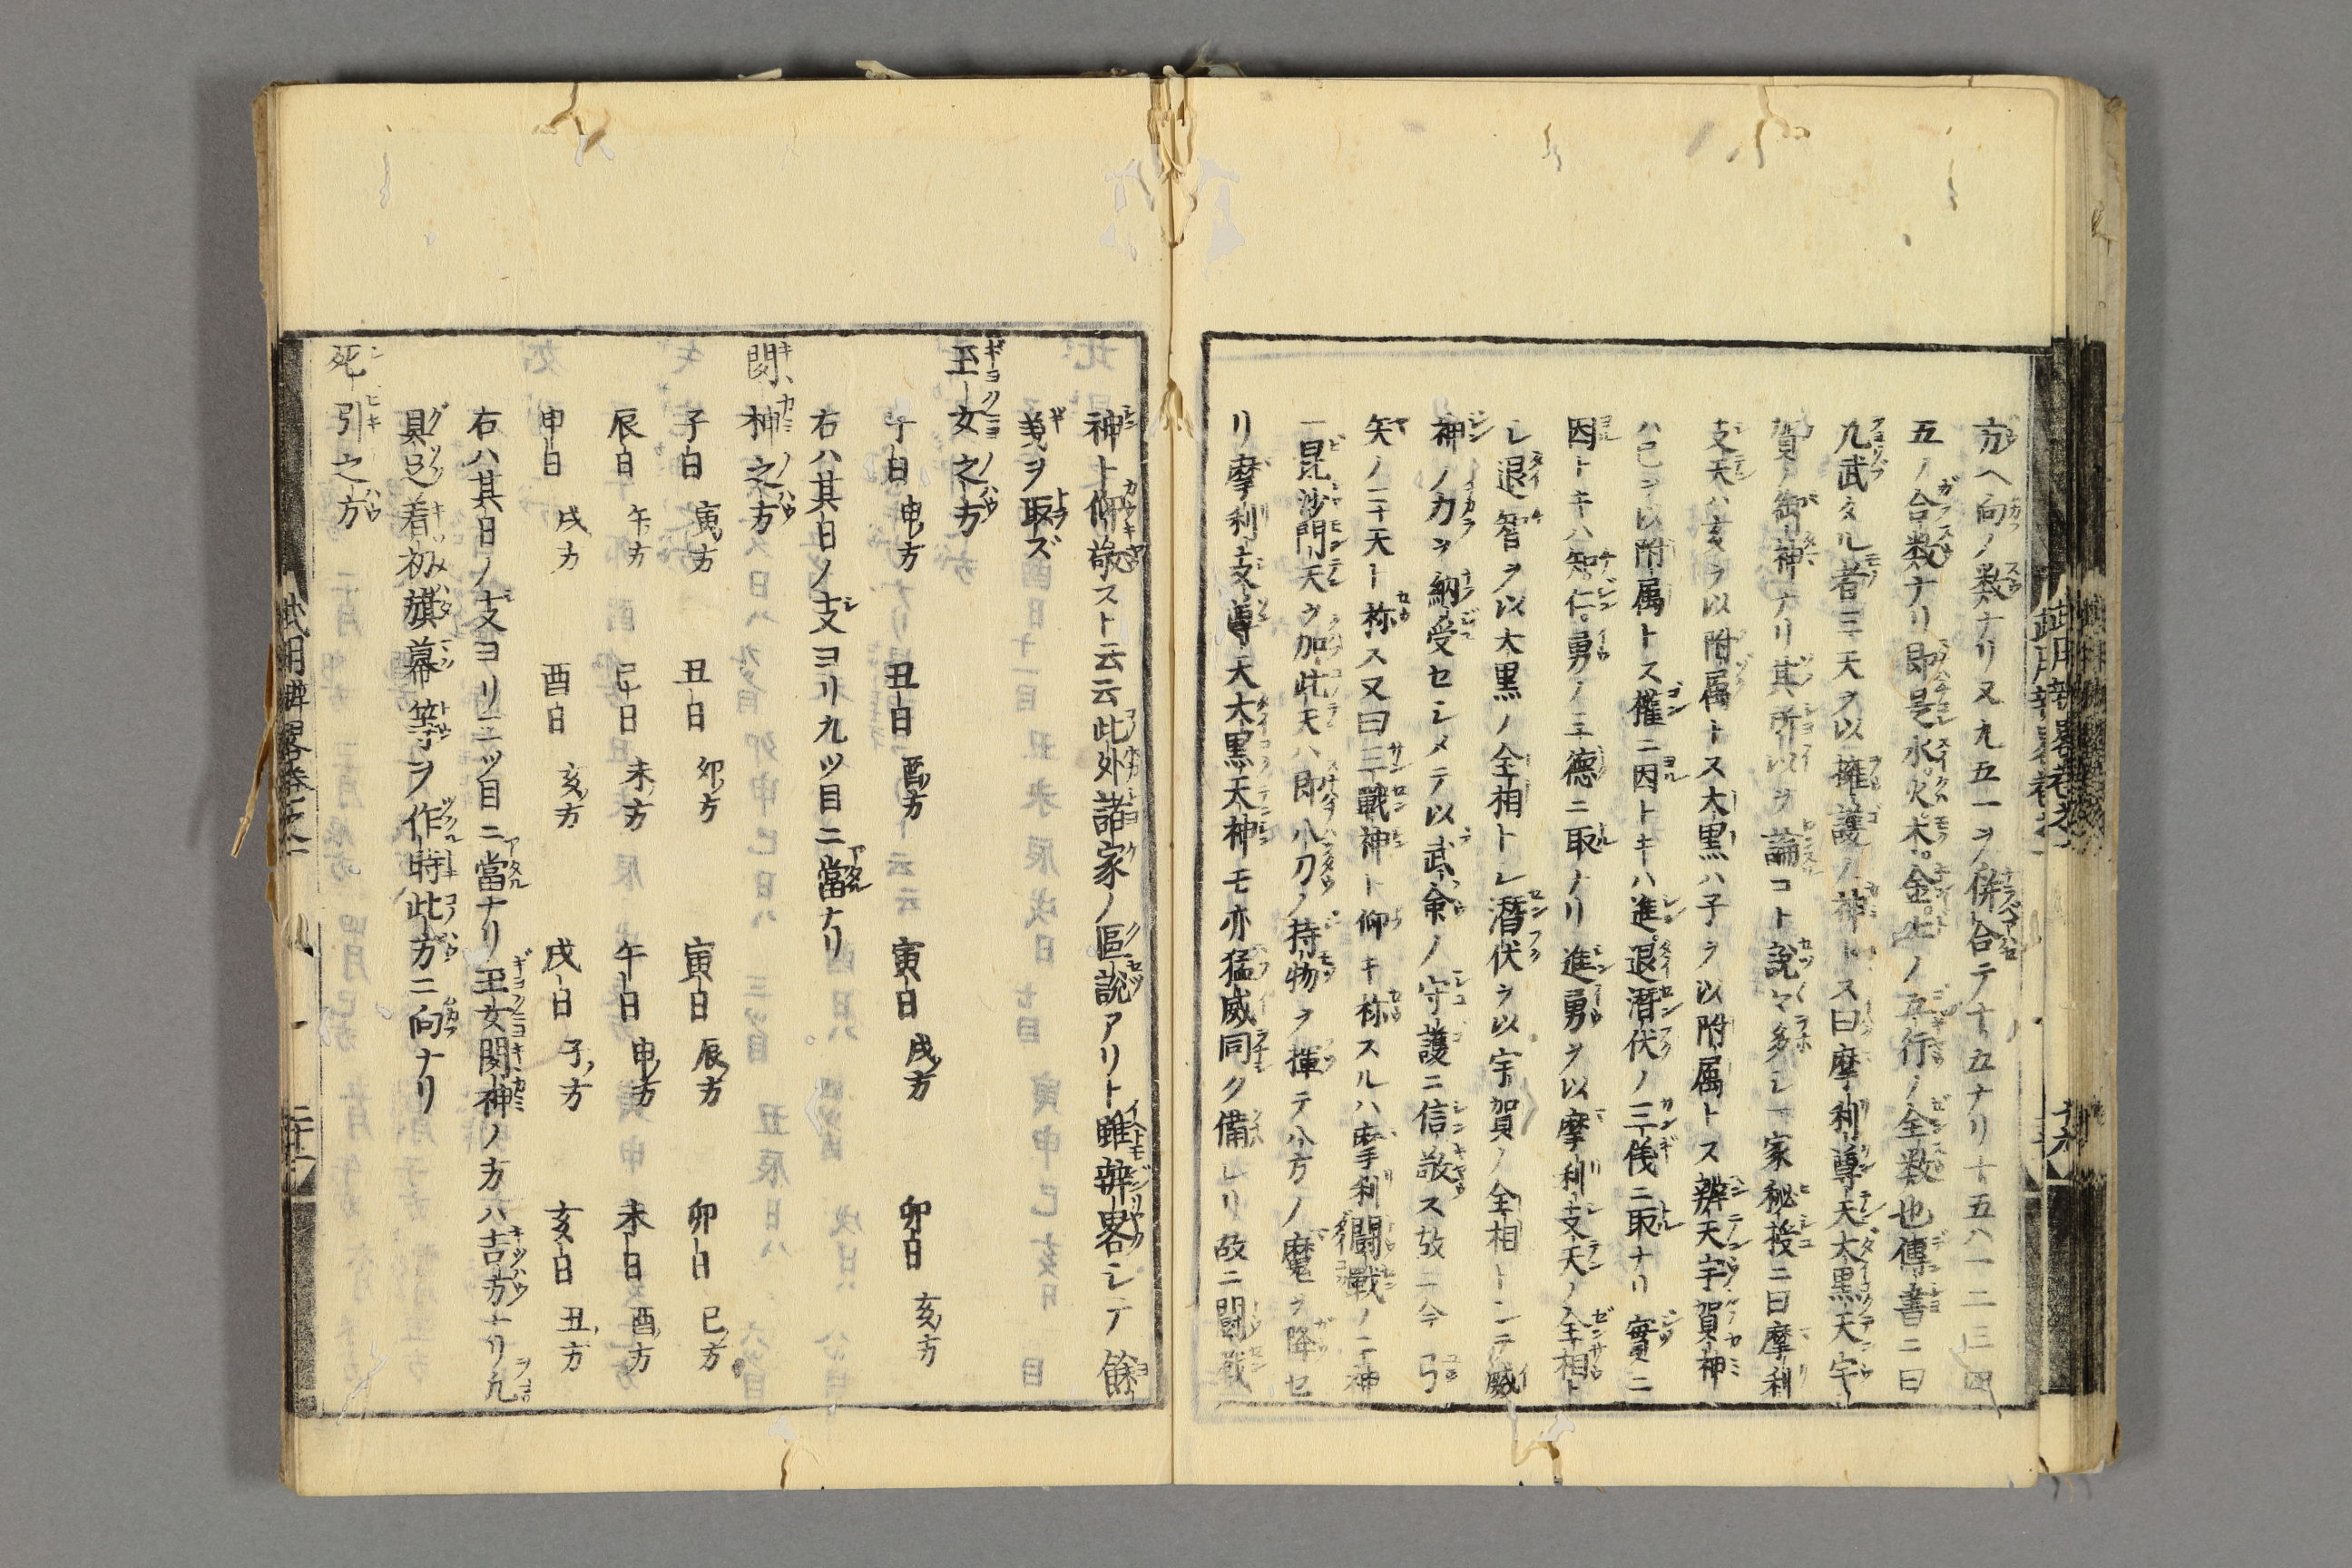 方ヘ向ノ数ナリ又九五一ヲ併合テ十五ナリ十五八一二三四
五ノ合数ナリ即是水火木金土ノ五行ノ全数也傳書ニ曰
凡武タル者三天ヲ以擁護ノ神トス曰摩利尊天大黒天宇
賀ノ御神ナリ其所以ヲ論コト説々多シ一家秘授ニ曰摩利
支天ハ亥ヲ以附属トス大黒ハ子ヲ以附属トス辨天宇賀神
ハ已ヲ以附属トス權ニ因トキハ進退潜伏ノ三儀ニ取ナリ實ニ
因トキハ知仁勇ノ三德ニ取ナリ進勇ヲ以摩利支天ノ全相ト
シ退智ヲ以大黒ノ全相トシ潛伏ヲ以宇賀ノ全相トシテ威
神ノ力ヲ納受セシメテ以武命ノ守護ニ信敬ス故ニ今弓
矢ノ三天ト称ス又曰三戰神ト仰キ称スルハ摩利闘戰ノ二神
一昆沙門天ヲ加此天ハ即八刀ノ持物ヲ揮テ八方ノ魔ヲ降セ
リ摩利支尊天大黒天神モ亦猛威同ク備レリ故ニ闘戦
神ト仰敬スト云云此外諸家ノ區説アリト雖辨畧シテ餘
義ヲ取ズ
玉女之方
子日 申方 丑日 酉方 寅日 戌方 卯日 亥方
右ハ其日ノ支ヨリ九ツ目ニ當ナリ
閧神之方
子日 寅方 丑日 卯方 寅日 辰方 卯日 巳方
辰日 午方 巳日 未方 午日 申方 未日 酉方
申日 戌方 酉日 亥方 戌日 子方 亥日 丑方
右ハ其日ノ支ヨリ三ツ目ニ當ナリ玉女閧神ノ方ハ吉方ナリ凡
具足着初旗幕等ヲ作時此方ニ向ナリ
死引之方
武用辨畧巻之一
二十一